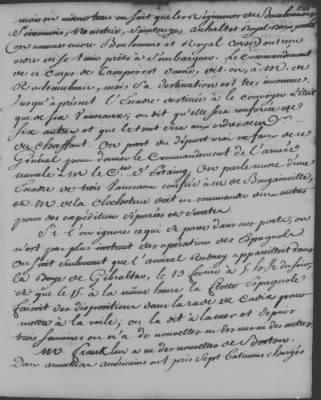 mais en même tems on sait que les Régimens de Bourbonnois,
Soissonnois, Neustrie, Saintonge, Anhalt et Royal
On nomme encore Soulonnois et Royal Corse) ont eu
ordre de se tenir prêts à s'embarquer. Le Commandement
de ce Corps de Troupes est donné, dit-on, à M. de
Rochambeau, mais sa destination est très inconnue.
Jusqu'à présent l'Escadre destinée à le convoyer n'étoit
que de six Vaisseaux; on dit qu'elle sera renforcée de
Six autres et que le tout sera aux ordres de M.
du Chaffaut. On part du départ vrai ou faux de ce
Général pour donner le Commandement de l'armée
navale à M. le Cte d'Estaing. On parle même d'une
Escadre de trois Vaisseaux confiée à M. de Bougainville,
et M. de la Clochetrie doit en commander une autre
pour des expéditions séparées et secretes.
Si l'on ignore ce qui se passe dans nos ports, on
n'est pas plus instruit des opérations des Espagnols
On sait seulement que l'amiral Rodney appareilloit dans
la Baye de Gibraltar, le 13 fevrier à 5. h. du soir,
et que le 15 à la même heure la flotte Espagnole
faisoit des dispositions dans la rade de Cadix pour
mettre à la voile; on la dit à la mer et depuis
trois semaines on n'a de nouvelles ni des uns ni des autres.
M. Franklin a eu des nouvelles de Boston.
Deux armateurs américains ont pris Sept batimens chargés